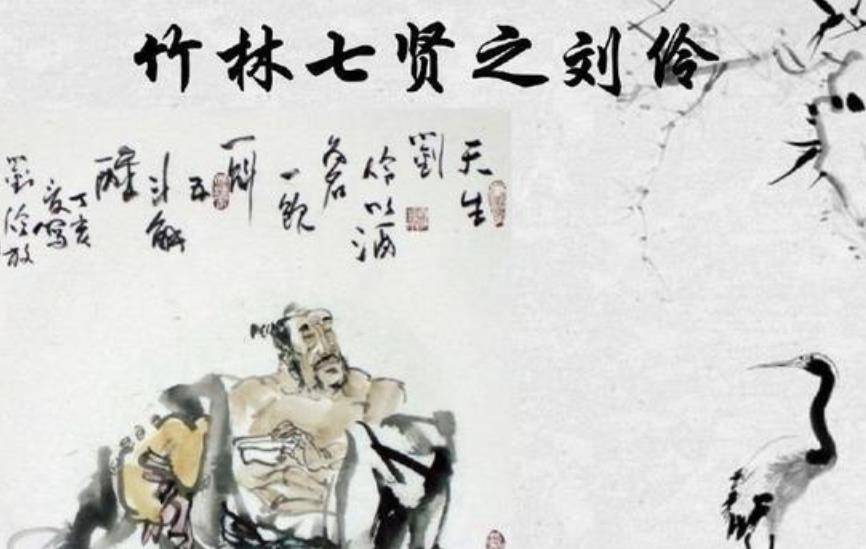 竹林七贤之刘伶
天生
劉
伶以酒
為名
一飲
一斛
五
斗解
酲
丁亥
夏寫
劉伶放